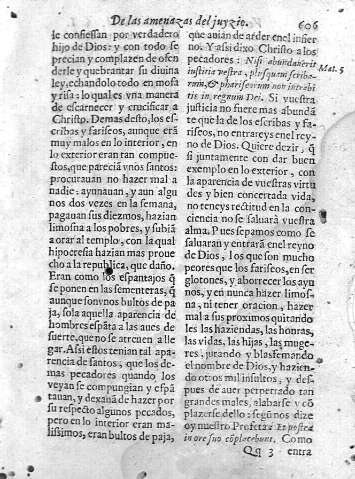 De las amenazas del juyzio.
606
le confiessan por verdadero
hijo de Dios: y con todo se
precian y complazen de ofen
derle y quebrantar su diuina
ley, echandolo todo en mofa
y risa: lo qual es vna manera
de escarnecer y crucificar a
Christo. Demas desto, los es-
cribas y fariseos, aunque erã
muy malos en lo interior, en
lo exterior eran tan compue-
stos, que parecià vnos santos:
procurauan no hazer mal a
nadie: aynauan, y aun algu
nos dos vezes en la semana,
pagauan sus diezmos, hazian
limosna a los pobres, y subiã
a orar al templo, con la qual
hipocresia hazian mas proue
cho a la republica, que daño.
Eran como los espantajos q̃
se ponen en las sementeras, q̃
aunque son vnos bultos de pa
ja, sola aquella aparencia de
hombres espãta a las aues de
suerte, que no se atreuen a lle
gar. Assi estos tenian tal apa-
rencia de santos, que los de-
mas pecadores quando los
veyan se compungian y espã
tauan, y dexauã de hazer por
su respeto algunos pecados,
pero en lo interior eran ma-
lissimos, eran bultos de paja,
que auian de arder en el infier
no. Y assi dixo Christo a los
pecadores: Nisi abundauerit
iustitia vestra, plusquam scriba-
rum, & phariseorum non intrabi
tis in regnum Dei. Si vuestra
Mat. 5
justicia no fuere mas abundã
te que la de los escribas y fa-
riseos, no entrareys en el rey-
no de Dios. Quiere dezir, q̃
si juntamente con dar buen
exemplo en lo exterior, con
la aparencia de vuestras virtu
des y bien concertada vida,
no teneys rectitud en la con-
ciencia no se saluarà vuestra
alma. Pues sepamos como se
saluaran y entrarã en el reyno
de Dios, los que son mucho
peores que los fariseos, en ser
glotones, y aborrecer los ayu
nos, y en nunca hazer limos-
na, ni tener oracion, hazer
mal a sus proximos quitando
les las haziendas, las honras,
las vidas, las hijas, las muge-
res, jurando y blasfemando
el nombre de Dios, y hazien-
do otros mil insultos, y des-
pues de auer perpetrado tan
grandes males, alabarse y cõ
plazerse dello: segũ nos dize
oy nuestro Profeta: Et postea
in ore suo cõplacebunt. Como
Qq 3 entra